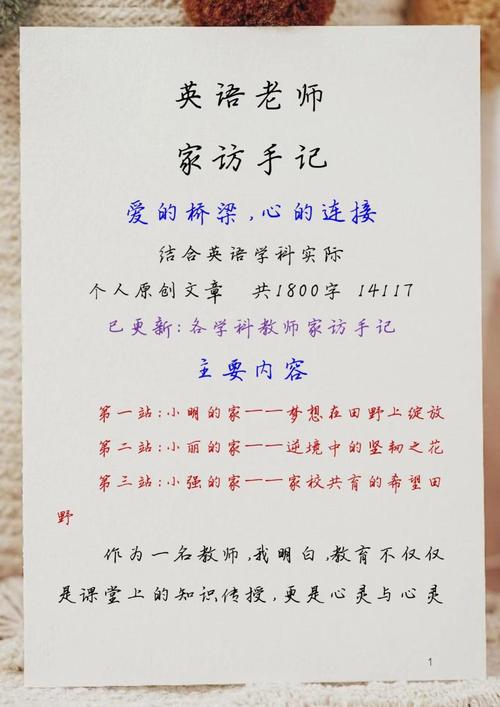 英语老师
家访手记
爱的桥梁,心的连接
结合英语学科实际
个人原创文章 共1800字 14117
已更新:各学科教师家访手记
主要内容
第一站:小明的家——梦想在田野上绽放
第二站:小丽的家——逆境中的坚韧之花
第三站:小强的家——家校共育的希望田
野
作为一名教师,我明白,教育不仅仅
是课堂上的知识传授,更是心灵与心灵
1